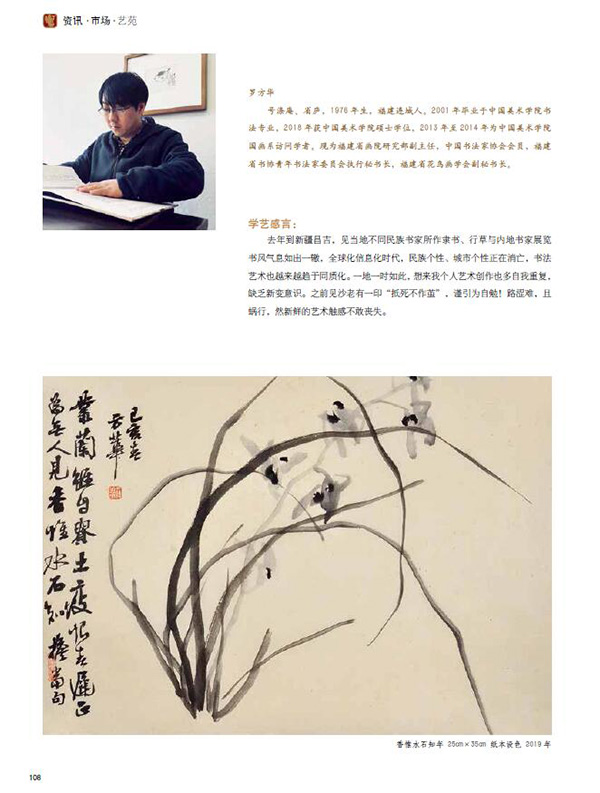 资讯·市场·艺苑
罗方华
号涤庵、省庐,1976年生,福建连城人,2001年毕业于中国美术学院书
法专业,2018年获中国美术学院硕士学位,2013年至2014年为中国美术学院
国画系访问学者。现为福建省画院研究部副主任,中国书法家协会会员,福建
省书协青年书法家委员会执行秘书长,福建省花鸟画学会副秘书长。
学艺感言:
去年到新疆昌吉,见当地不同民族书家所作隶书、行草与内地书家展览
书风气息如出一辙,全球化信息化时代,民族个性、城市个性正在消亡,书法
艺术也越来越趋于同质化。一地一时如此,想来我个人艺术创作也多自我重复,
缺乏新变意识。之前见沙老有一印“抵死不作茧”,谨引为自勉!路涩难,且
蜗行,然新鲜的艺术触感不敢丧失。
己亥春
方华
丛兰虽自
为无人见香惟水石知
香惟水石知年 25cm×35cm 纸本设色 2019年
108